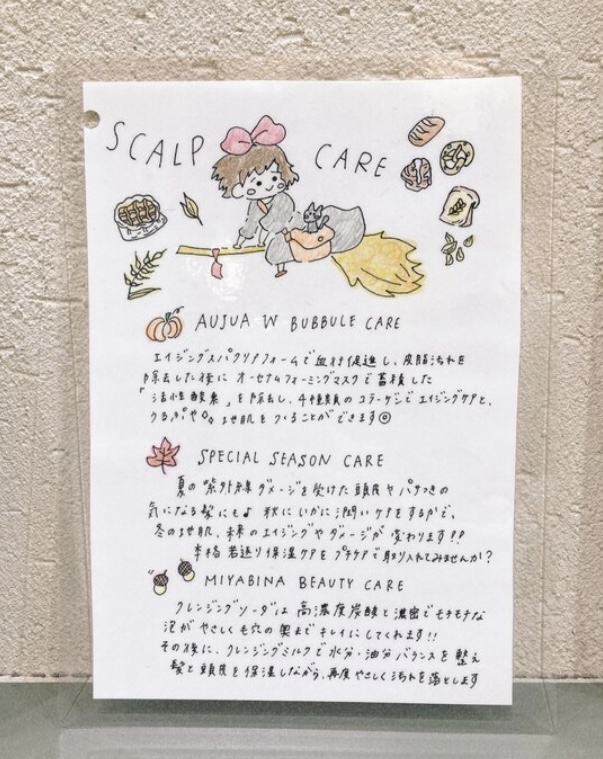 SCALP CARE
AUJUA W BUBBULE CARE
エイジングスパクリアフォームで血行促進し、皮脂汚れを
除去した後に オーセナムフォーミングマスクで蓄積した
「活性酸素」を除去し、4種類のコラーゲンでエイジングケアと、
うるツヤ 地肌をつくることができます◎
SPECIAL SEASON CARE
夏の紫外線ダメージを受けた頭皮やパサつきの
気になる髪にも♪ 秋にいかに潤いケアをするかで、
冬の地肌、未来のエイジングやダメージが変わります!!
本格若返り保湿ケアをプチケアで取り入れてみませんか?
MIYABINA BEAUTY CARE
クレンジングソーダは 高濃度炭酸と濃密でモチモチな
泡がやさしく毛穴の奥までキレイにしてくれます!!
その後に、クレンジングミルクで水分・油分バランスを整え
髪と頭皮を保湿しながら、再度やさしく汚れを落とします